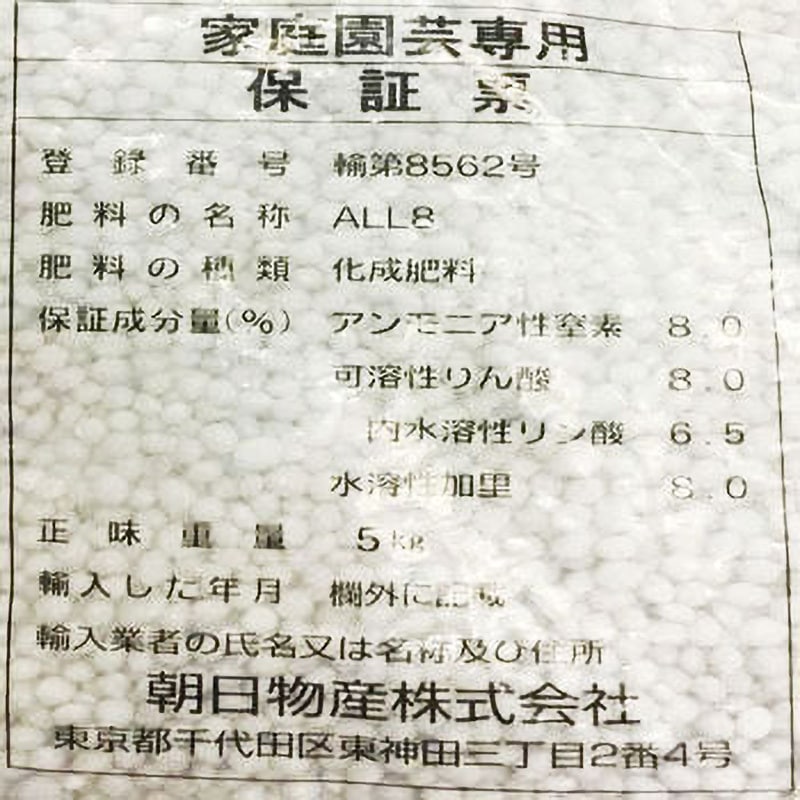 家庭園芸専用
保証票
登録番号 輸第8562号
肥料の名称 ALL8
肥料の種類 化成肥料
保証成分量(%) アンモニア性窒素 8.0
可溶性りん酸 8.0
内水溶性リン酸 6.5
水溶性加里 8.0
正味重量 5kg
輸入した年月 欄外に記載
輸入業者の氏名又は名称及び住所
朝日物産株式会社
東京都千代田区東神田三丁目2番4号